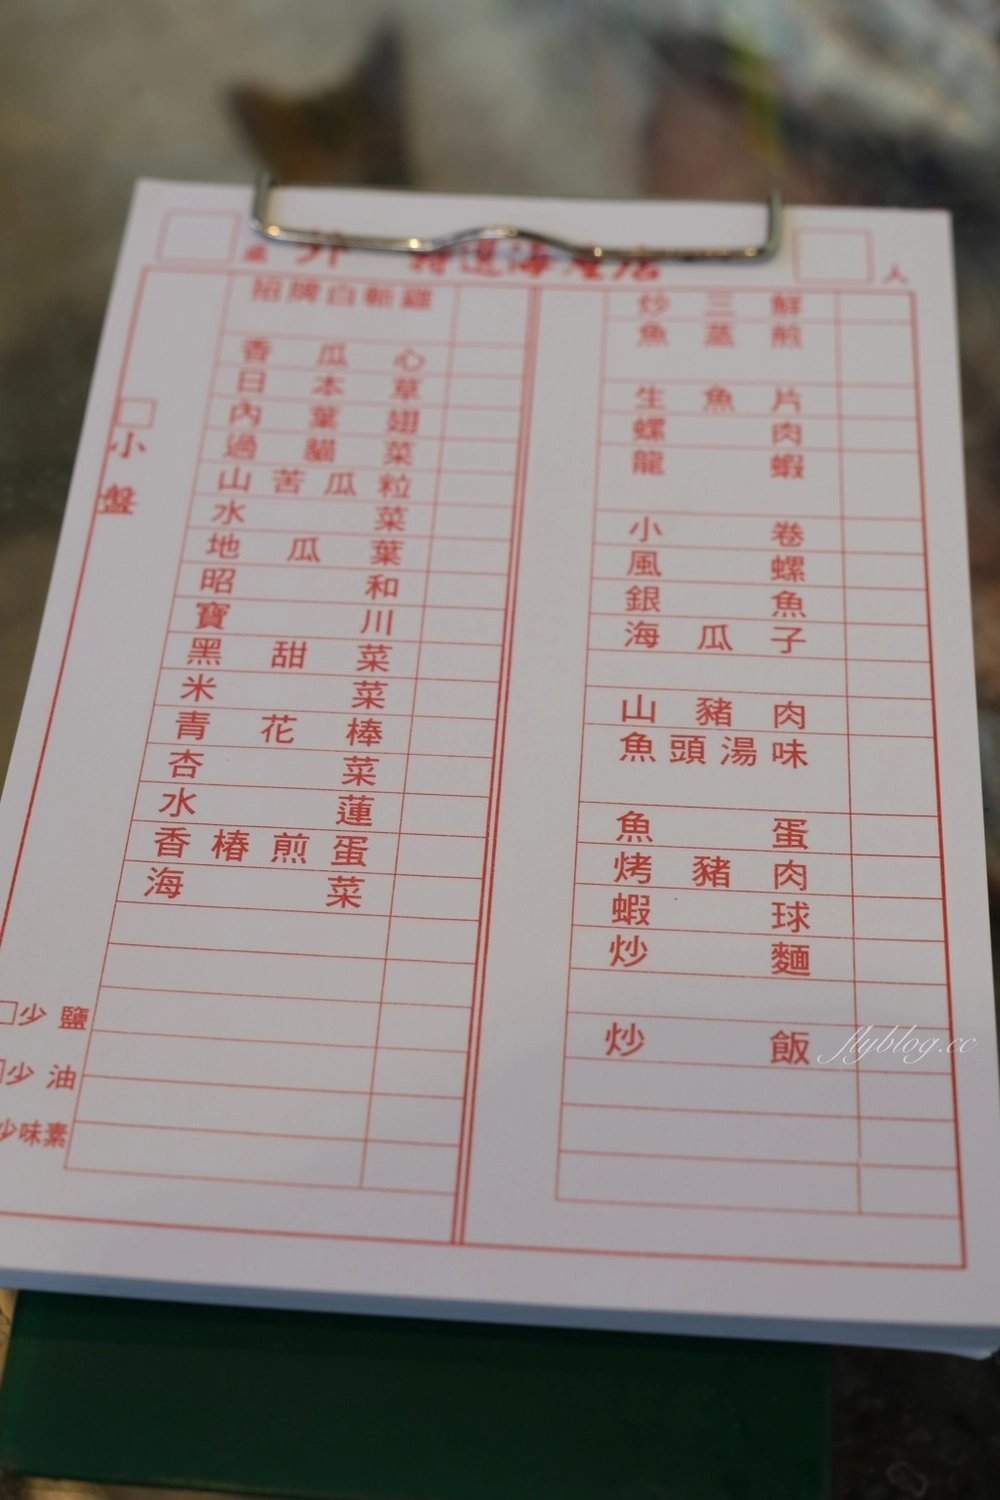 升 特選海產店
人
招牌白斬雞
香瓜心
日本草
內葉翅
過貓菜
山苦瓜粒
水菜
地瓜葉
昭和
寶川
黑甜菜
米菜
青花棒
杏菜
水蓮
香椿煎蛋
海菜
小盤
少鹽
少油
少味素
炒三鮮
魚蒸煎
生魚片
螺肉
龍蝦
小卷
風螺
銀魚
海瓜子
山豬肉
魚頭湯味
魚蛋
烤豬肉
蝦球
炒麵
炒飯
flyblog.cc